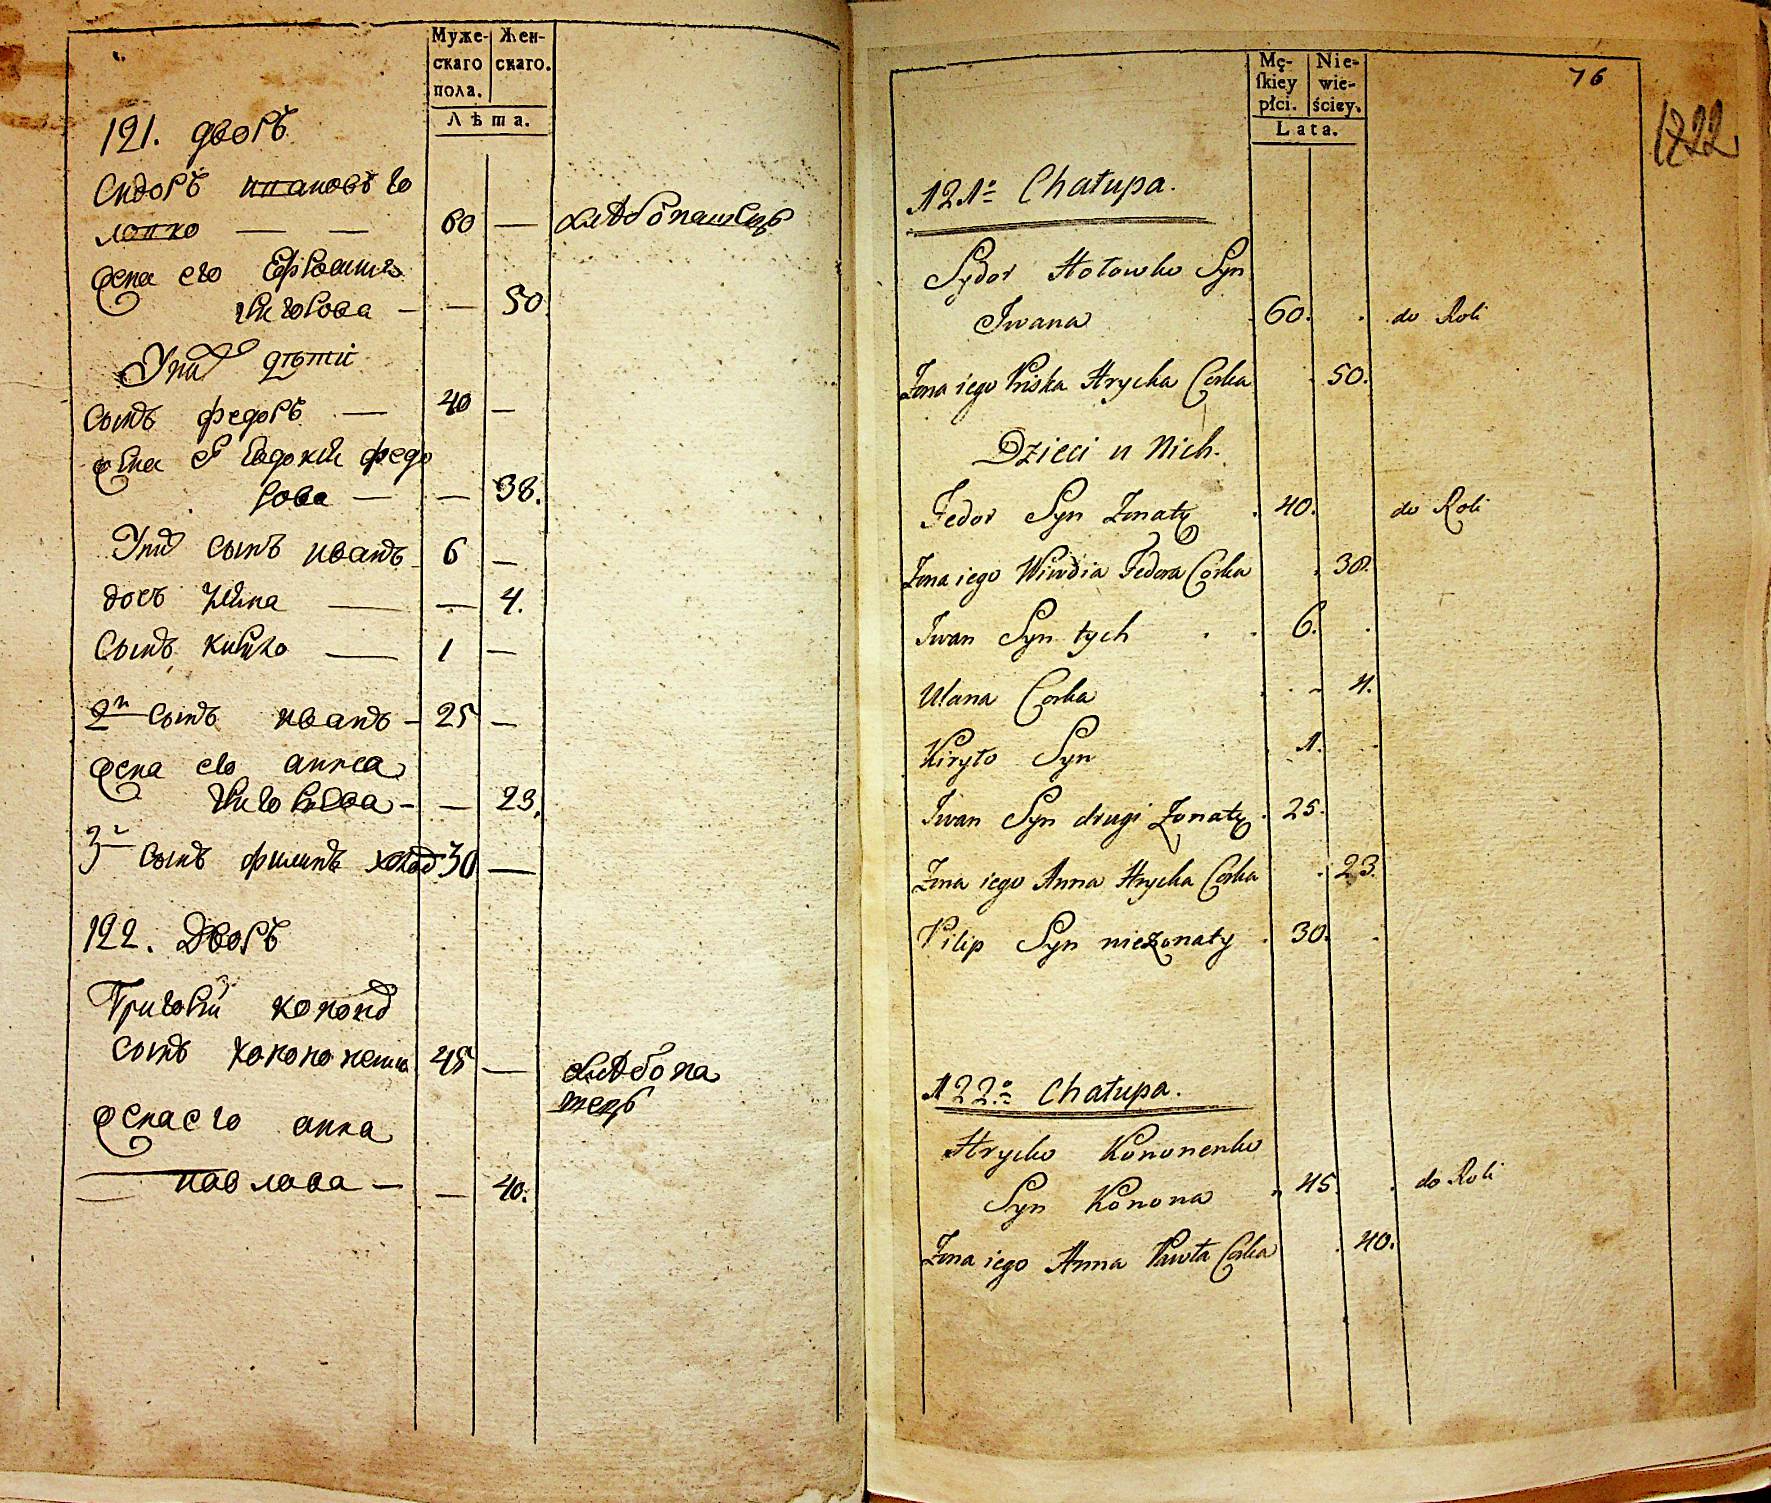 Муже-
скаго
пола.
Жен-
скаго.
Лѣта.
121. дворъ
Сидоръ ивановъ го
ловко — — 60 — хлѣбопашецъ
жена его
григорова — — 50.
У них дѣти
Сынъ федоръ — 40 —
жена е Евдокия федо
рова — — 38.
У них сынъ иванъ 6 —
дочь — — 4.
Сынъ кирило — 1 —
2й сынъ иванъ - 25 —
жена его анна
григорьева - — 23.
3й сынъ филипъ холос 30 —
122. Дворъ
Григорий конон
сынъ кононенко 45 — хлѣбопа
шецъ
жена его анна
павлова — — 40.
Mę-
skiey
płci.
Nie-
wie-
ściey.
Lata.
76
1822
121º Chałupa.
Sydor Hołowko Syn
Iwana 60. . do Roli
Żona iego Priska Hrycka Corka . 50.
Dzieci u Nich.
Fedor Syn Żonaty . 40. do Roli
Żona iego Wiwdia Fedora Corka . 38.
Iwan Syn tych . . 6. .
Ulana Corka . . 4.
Kiryło Syn . 1. .
Iwan Syn drugi Żonaty . 25.
Żona iego Anna Hrycka Corka . 23.
Pilip Syn nieżonaty . 30. .
122º Chałupa.
Hrycko Kononenko
Syn Konona 45. . do Roli
Żona iego Anna Pawła Corka . 40.